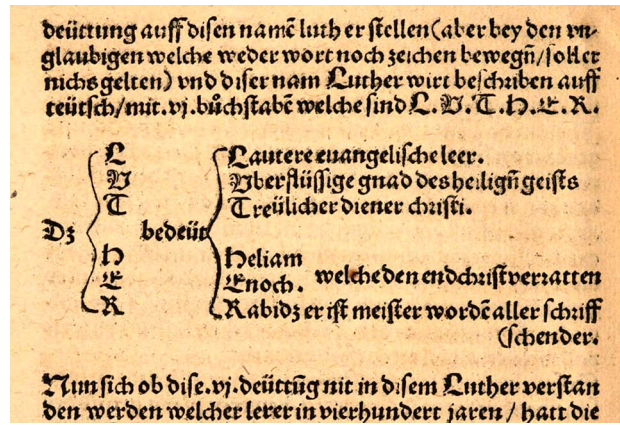 deüttung auff disen namē luth er stellen (aber bey den vn-
glaubigen welche weder wort noch zeichen bewegn̄ / soll er
nichs gelten) vnd diser nam Luther wirt beschriben auff
teütsch / mit .vj. bůchstabē welche sind L. V. T. H. E. R.
L Lautere euangelische leer.
V Vberflüssige gnad des heilign̄ geists
T Treülicher diener christi.
Dz bedeüt
H Heliam
E Enoch. welche den endchrist verratten
R Rabi dz er ist meister wordē aller schriff
(schender.
Nun sich ob dise .vj. deüttūg nit in disem Luther verstan
den werden welcher lerer in vierhundert jaren / hatt die